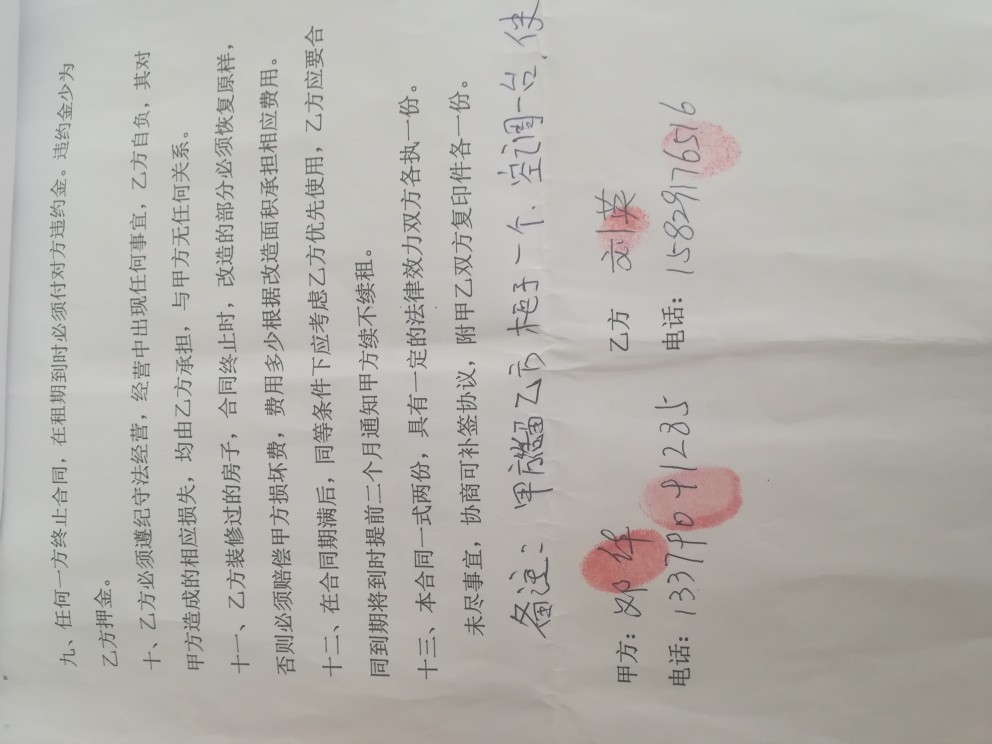 九、任何一方终止合同，在租期到时必须付对方违约金。违约金少为
乙方押金。
十、乙方必须遵纪守法经营，经营中出现任何事宜，乙方自负，其对
甲方造成的相应损失，均由乙方承担，与甲方无任何关系。
十一、乙方装修过的房子，合同终止时，改造的部分必须恢复原样，
否则必须赔偿甲方损坏费，费用多少根据改造面积承担相应费用。
十二、在合同期满后，同等条件下应考虑乙方优先使用，乙方应要合
同到期将到时提前二个月通知甲方续不续租。
十三、本合同一式两份，具有一定的法律效力双方各执一份。
未尽事宜，协商可补签协议，附甲乙双方复印件各一份。
备注：甲方留乙方柜子一个、空调一台，
甲方：邓华 乙方 刘英
电话：13379041285 电话：15829176516